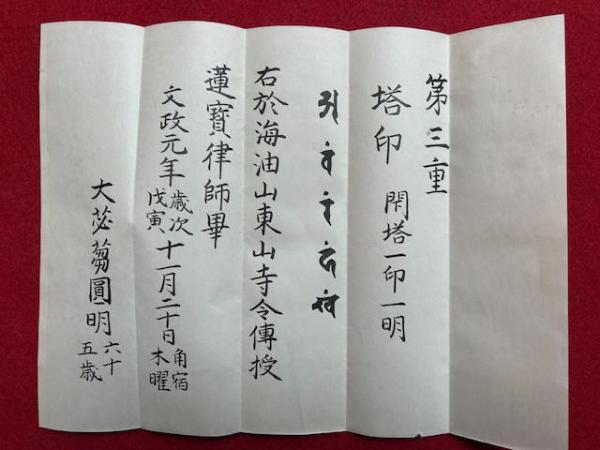 第三重
塔印 閇塔一印一明
右於海油山東山寺令傳授
蓮寶律師畢
文政元年歳次戊寅十一月二十日角宿木曜
大苾蒭圓明六十五歳